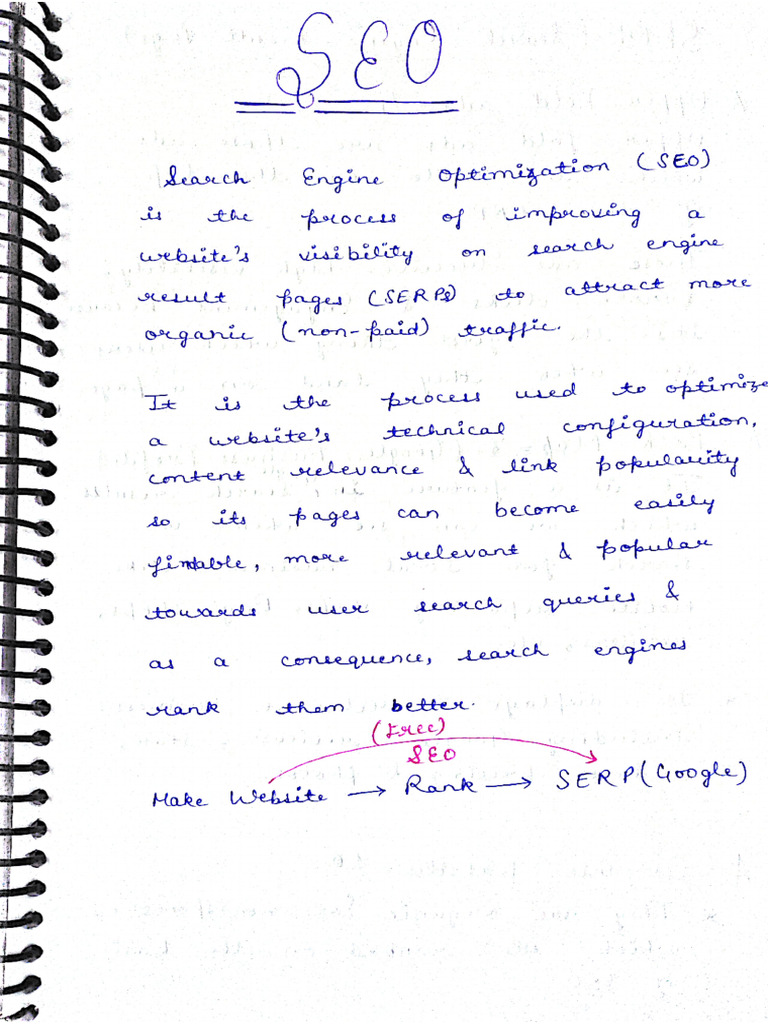 SEO
Search Engine Optimization (SEO)
is the process of improving a
website's visibility on search engine
result pages (SERPs) to attract more
organic (non-paid) traffic.
It is the process used to optimize
a website's technical configuration,
content relevance & link popularity
so its pages can become easily
findable, more relevant & popular
towards user search queries &
as a consequence, search engines
rank them better.
(Free)
SEO
Make Website → Rank → SERP (Google)